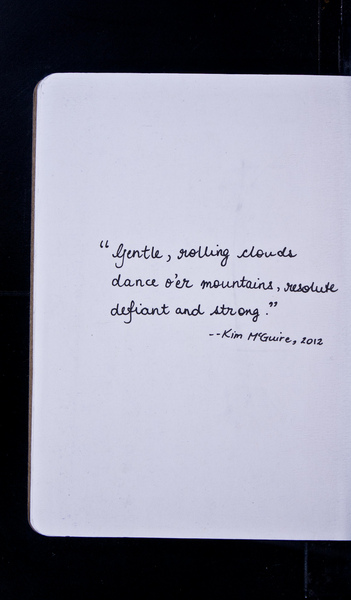 “Gentle, rolling clouds
dance o'er mountains, resolute
defiant and strong.”
--Kim McGuire, 2012